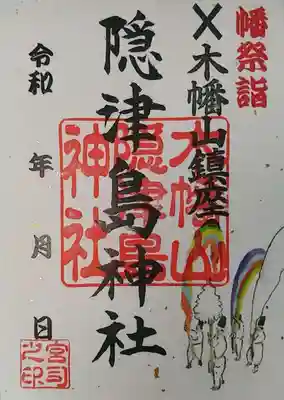 幡祭詣
X木幡山鎮座
隠津島神社
木幡山
隠津島
神社
令和 年 月 日
宮司
之印